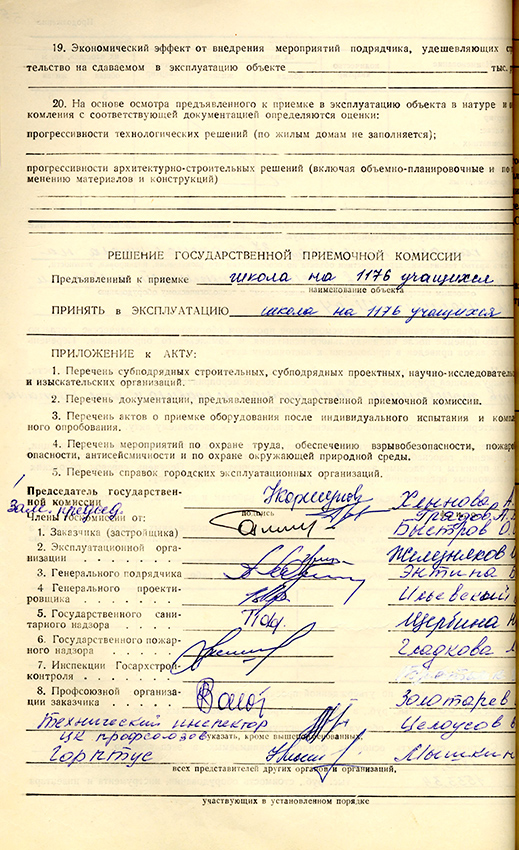 19. Экономический эффект от внедрения мероприятий подрядчика, удешевляющих
тельство на сдаваемом в эксплуатацию объекте тыс.
20. На основе осмотра предъявленного к приемке в эксплуатацию объекта в натуре и
комления с соответствующей документацией определяются оценки:
прогрессивности технологических решений (по жилым домам не заполняется);
прогрессивности архитектурно-строительных решений (включая объемно-планировочные и по
менению материалов и конструкций)
РЕШЕНИЕ ГОСУДАРСТВЕННОЙ ПРИЕМОЧНОЙ КОМИССИИ
Предъявленный к приемке школа на 1176 учащихся
наименование объекта
ПРИНЯТЬ в ЭКСПЛУАТАЦИЮ школа на 1176 учащихся
ПРИЛОЖЕНИЕ к АКТУ:
1. Перечень субподрядных строительных, субподрядных проектных, научно-исследовате
и изыскательских организаций.
2. Перечень документации, предъявленной государственной приемочной комиссии.
3. Перечень актов о приемке оборудования после индивидуального испытания и
ного опробования.
4. Перечень мероприятий по охране труда, обеспечению взрывобезопасности, пожаро
опасности, антисейсмичности и по охране окружающей природной среды.
5. Перечень справок городских эксплуатационных организаций.
Председатель государствен-
ной комиссии Хлынова А.
Зам. председ. подпись Градов Л.
Члены госкомиссии от:
1. Заказчика (застройщика) Быстров О.
2. Эксплуатационной орга-
низации Железняков
3. Генерального подрядчика Энтина
4. Генерального проекти-
ровщика Ильевский
5. Государственного сани-
тарного надзора Щербина
6. Государственного пожар-
ного надзора Гладкова
7. Инспекции Госархстрой-
контроля
8. Профсоюзной организа-
ции заказчика Золотарев
Технический инспектор Целоусов
ЦК профсоюзов указать, кроме вышепоименованных,
Горптус Мышкин
всех представителей других органов и организаций,
участвующих в установленном порядке